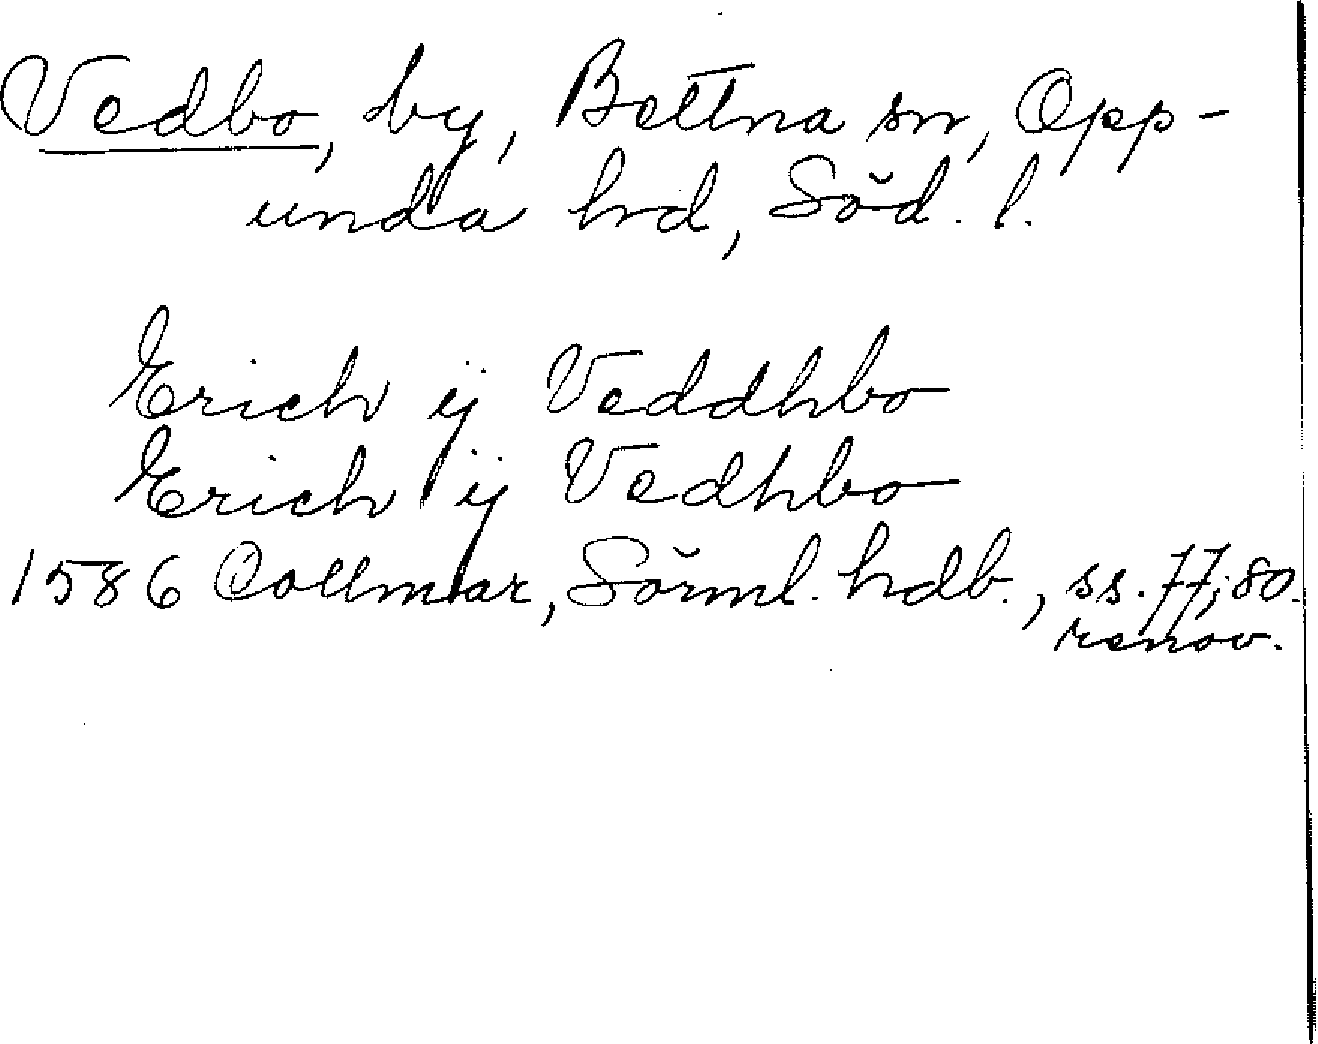 Vedbo, by, Bettna sn, Opp-
unda hd, Söd. l.
Erich ij Veddhbo
Erich ij Vedhbo
1586 Collmar, Sörml. hdb., ss. 77, 80.
renov.